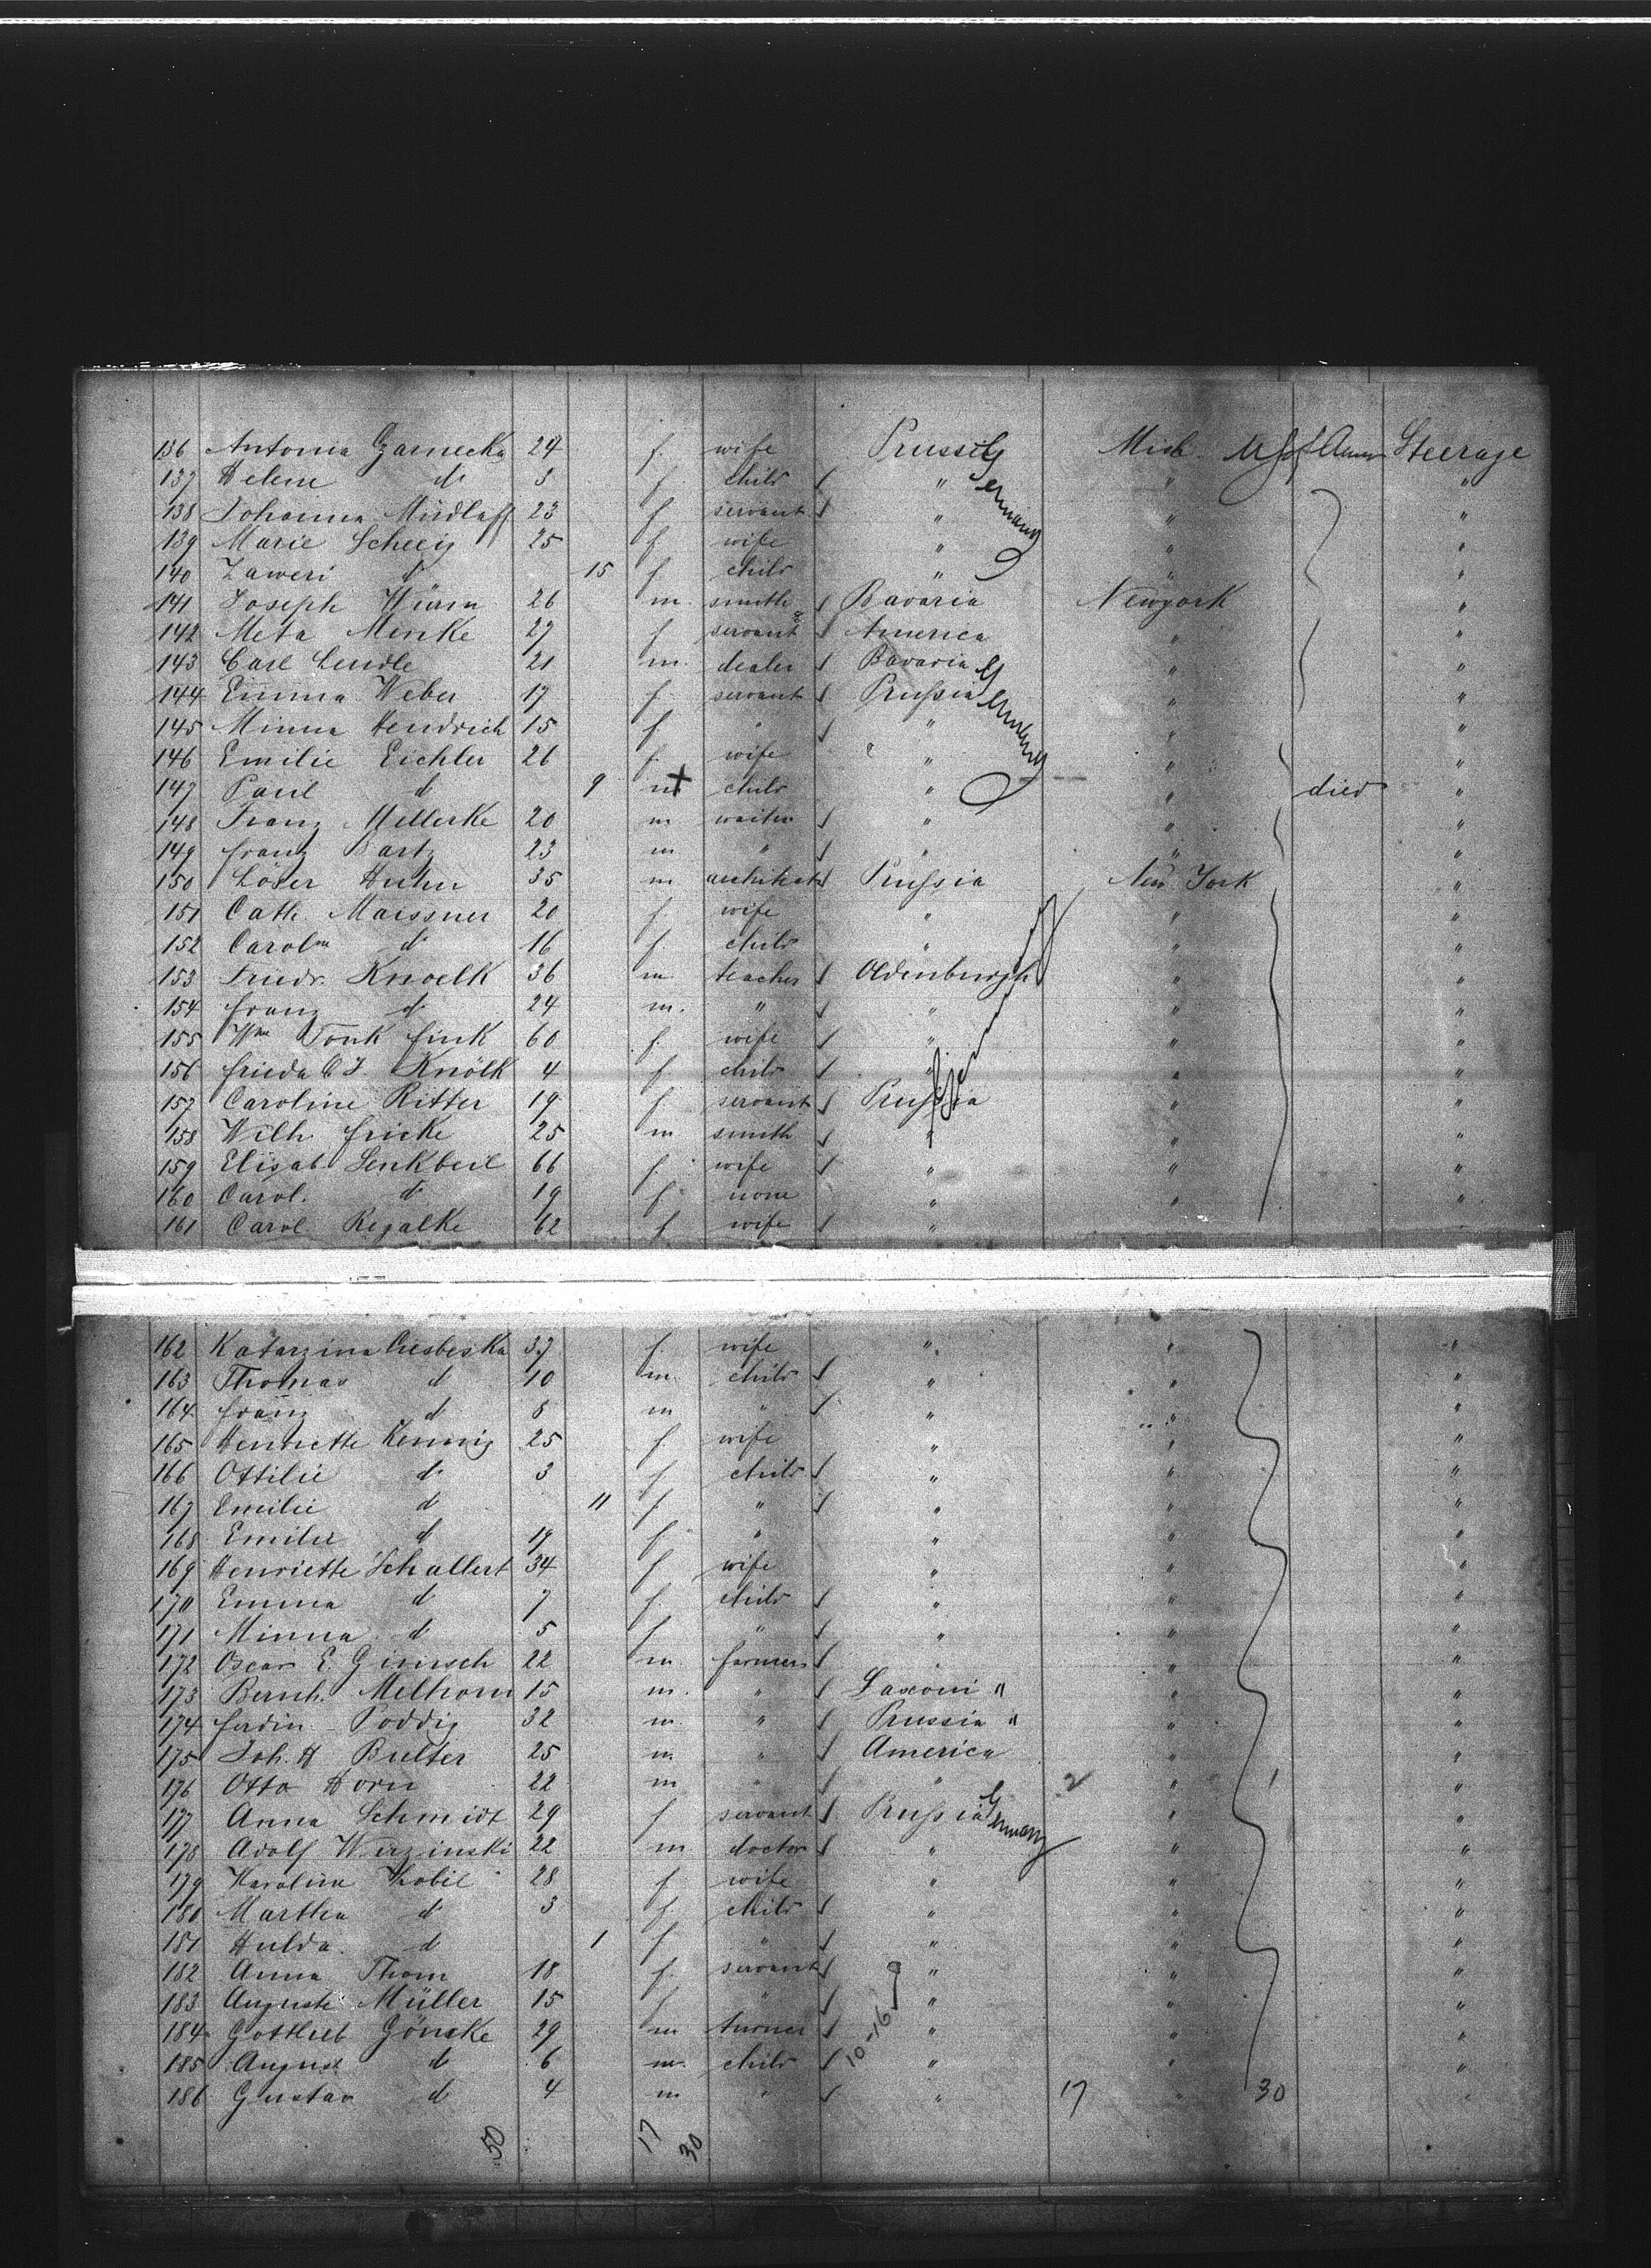 136 Antonia Czarnecka 24 f. wife Prussia Germany Mich. U St of Amer Steerage
137 Helene d 5 f. child " " "
138 Johanna Müdlaff 23 f servant " " "
139 Marie Scheeij 25 f wife " " "
140 d 15 f. child " " "
141 Joseph Würm 26 m. smith Bavaria Newyork "
142 Meta Menke 27 f servant America " "
143 Carl Lendle 21 m. dealer Bavaria " "
144 Emma Weber 17 f. servant Prussia Germany " "
145 Minna Hendrich 15 f " " " "
146 Emilie Eichler 26 f. wife " " "
147 Paul d 9 m child " " died "
148 Franz Mellerke 20 m waiter " " "
149 Franz Bartz 23 m " " " "
150 Löser Huhn 35 m architect Prussia New York "
151 Cath. Maissner 20 f. wife " " "
152 Carol d 16 f. child " " "
153 Friedr. Knoelk 36 m teacher Oldenburgh " "
154 Franz d 24 m. " " " "
155 Wm Tonk fink 60 f. wife " " "
156 Frieda C J. Knölk 4 f child " " "
157 Caroline Ritter 19 f. servant Prussia " "
158 Wilh. Fricke 25 m smith " " "
159 Elisab. Senkbeil 66 f. wife " " "
160 Carol. d 19 f. none " " "
161 Carol. Regalke 62 f wife "
162 Katarzina 37 f. wife " " "
163 Thomas d 10 m. child " " "
164 Franz d 8 m " " " "
165 Henriette Kennig 25 f. wife " " "
166 Ottilie d 3 f child " " "
167 Emilie d 11 f. " " " "
168 Emilie d 19 f. " " " "
169 Henriette Schallert 34 f wife " " "
170 Emma d 7 f. child " " "
171 Minna d 5 f " " " "
172 Oscar E. Giersch 22 m. farmer " " "
173 Bernh. Melhorn 15 m. " Saxoni " " "
174 Ferdin. Poddig 32 m. " Prussia " " "
175 Joh. H Bulter 25 m. " America " "
176 Otto Horn 22 m " " 2 " 1 "
177 Anna Schmidt 29 f servant Prussia Germany " "
178 Adolf Wirzinski 22 m. doctor " " "
179 Karolina Kobil 28 f wife " " "
180 Martha d 3 f. child " " "
181 Hulda d 1 f " " " "
182 Anna Thom 18 f. servant " " "
183 Auguste Müller 15 f " " " "
184 Gottlieb Gönske 29 m turner " " "
185 August d 6 m. child 10-16 " " "
186 Gustav d 4 m " " 17 " 30 "
50 17 30